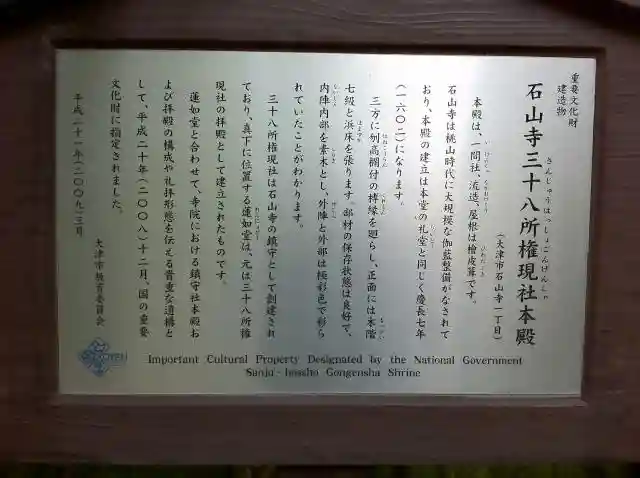 重要文化財
建造物
石山寺三十八所権現社本殿
さんじゅうはっしょごんげんしゃ
(大津市石山寺一丁目)
本殿は、一間社、流造、屋根は檜皮葺です。
石山寺は桃山時代に大規模な伽藍整備がなされて
おり、本殿の建立は本堂の礼堂と同じく慶長七年
(一六〇二)になります。
三方に刎高欄付の榑縁を廻らし、正面には木階
七級と浜床を張ります。部材の保存状態は良好で、
内陣内部を素木とし、外陣と外部は極彩色で彩ら
れていたことがわかります。
三十八所権現社は石山寺の鎮守として創建され
ており、真下に位置する蓮如堂は、元は三十八所権
現社の拝殿として建立されたものです。
蓮如堂と合わせて、寺院における鎮守社本殿お
よび拝殿の構成や礼拝形態を伝える貴重な遺構と
して、平成二十年(二〇〇八)十二月、国の重要
文化財に指定されました。
平成二十一年(二〇〇九)三月
大津市教育委員会
Important Cultural Property Designated by the National Government
Sanju-hassho Gongensha Shrine